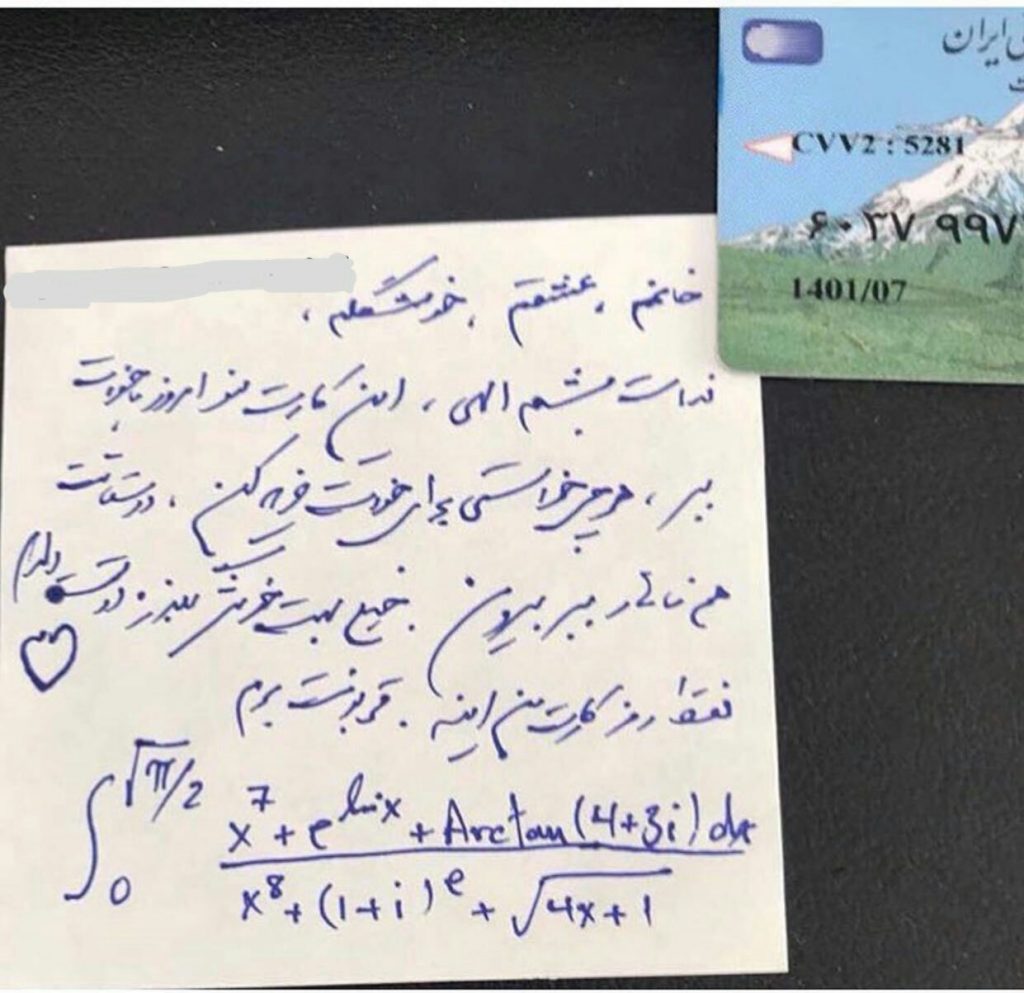 ایران
CVV2 : 5281
۶۰۳۷ ۹۹۷
1401/07
خانم ، عشقم ، خوشگلم ،
فدات بشم الهی ، این کارت منو امروز با خودت
ببر ، هرچی خواستی برای خودت خرید کن ، دوستات
هم ناهار ببر بیرون . خیلی بهت خوش بگذره دوست دارم
فقط رمز کارت من اینه . قربونت برم
∫₀^{√π/2} (x⁷ + e^{ln x} + Arctan(4+3i) dx) / (x⁸ + (1+i)^e + √(4x+1))